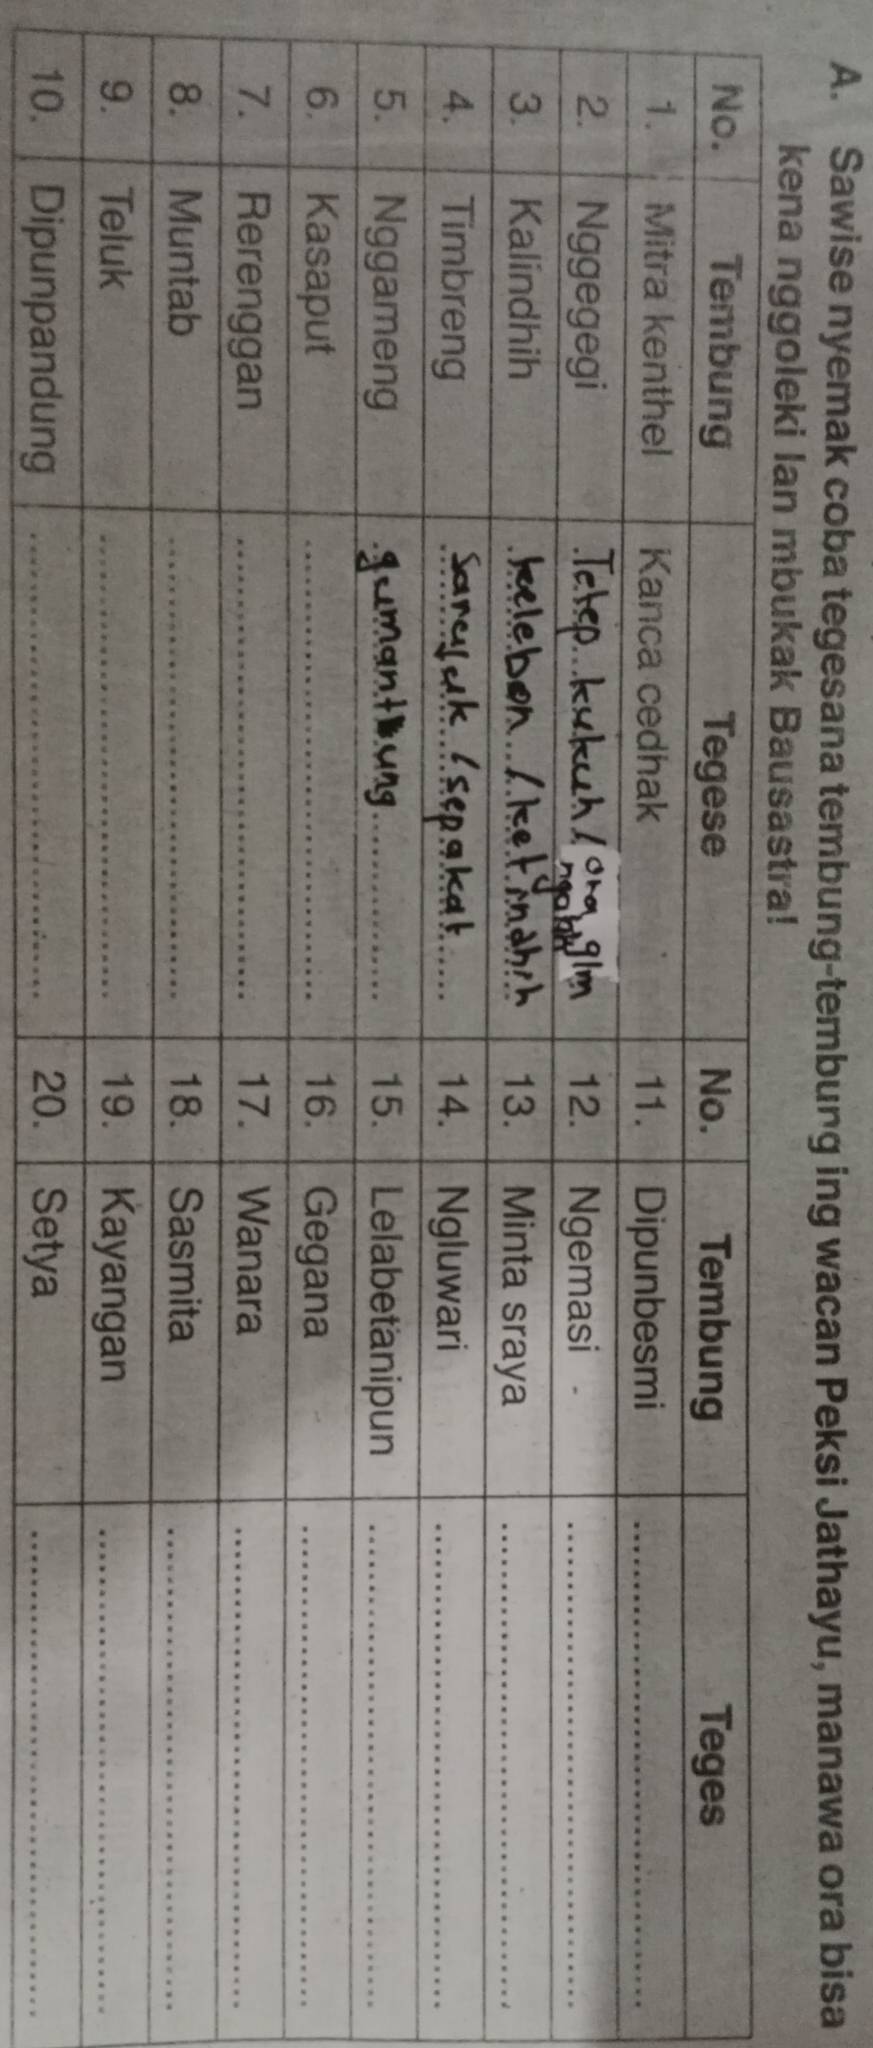 A. Sawise nyemak coba tegesana tembung-tembung ing wacan Peksi Jathayu, manawa ora bisa
kena nggoleki lan mbukak Bausastra!
No. Tembung Tegese No. Tembung Teges
1. Mitra kenthel Kanca cedhak 11. Dipunbesmi
2. Nggegegi Tetep kukuh / ora glm 12. Ngemasi -
3. Kalindhih kelebon / ketindhih 13. Minta sraya
4. Timbreng Sarujuk / sepakat 14. Ngluwari
5. Nggameng gumantung 15. Lelabetanipun
6. Kasaput 16. Gegana
7. Rerenggan 17. Wanara
8. Muntab 18. Sasmita
9. Teluk 19. Kayangan
10. Dipunpandung 20. Setya